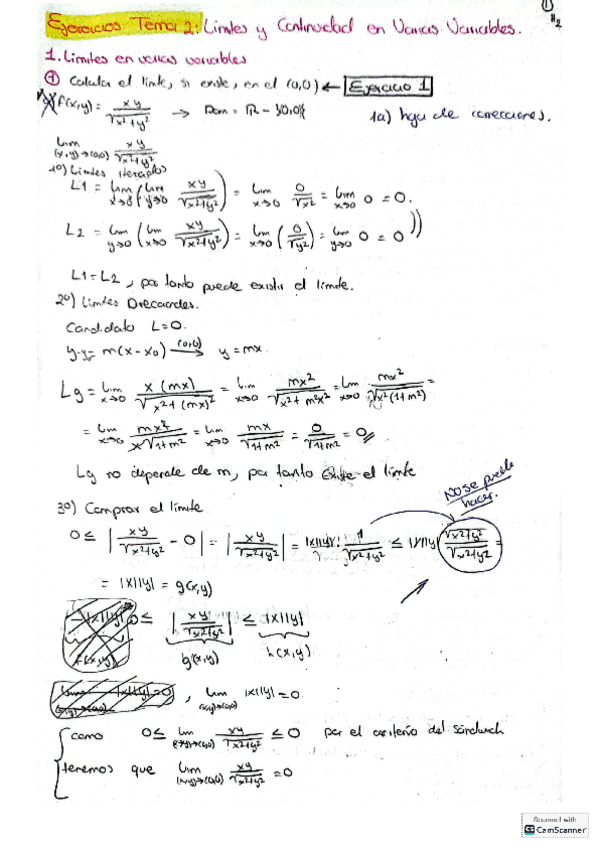 ①
H2
Ejercicios Tema 2: Límites y Continuidad en Varias Variables.
1. Límites en varias variables
① Calcula el límite, si existe, en el (0,0) ← Ejercicio 1
f(x,y) = xy/√x²+y² → Dom = R - {0,0}
1a) hoja de correcciones.
lim (x,y)→(0,0) xy/√x²+y²
1º) Límites iterados
L1 = lim x→0 (lim y→0 xy/√x²+y²) = lim x→0 0/√x² = lim x→0 0 = 0.
L2 = lim y→0 (lim x→0 xy/√x²+y²) = lim y→0 (0/√y²) = lim y→0 0 = 0))
L1 = L2, por tanto puede existir el límite.
2º) Límites Direccionales.
Candidato L=0.
y-y₀= m(x-x₀) (0,0)→ y=mx.
Lg = lim x→0 x(mx)/√x²+(mx)² = lim x→0 mx²/√x²+m²x² = lim x→0 mx²/√x²(1+m²) =
= lim x→0 mx²/x√1+m² = lim x→0 mx/√1+m² = 0/√1+m² = 0//
Lg no depende de m, por tanto existe el límite
No se puede hacer.
3º) Comprobar el límite
0 ≤ |xy/√x²+y² - 0| = |xy/√x²+y²| = |x||y| 1/√x²+y² ≤ |x||y| √x²+y²/√x²+y² =
= |x||y| = g(x,y)
-|x||y| 0 ≤ |xy/√x²+y²| ≤ |x||y|
f(x,y) g(x,y) h(x,y)
lim (x,y)→(0,0) -|x||y|=0, lim (x,y)→(0,0) |x||y|=0
como 0 ≤ lim (x,y)→(0,0) xy/√x²+y² ≤ 0 por el criterio del sándwich
tenemos que lim (x,y)→(0,0) xy/√x²+y² = 0
Scanned with
CS CamScanner